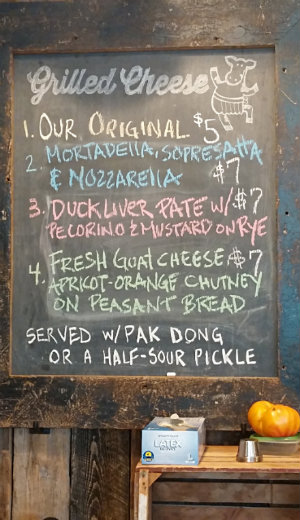 Grilled Cheese
1. OUR ORIGINAL $5
2. MORTADELLA, SOPRESATTA
& MOZZARELLA $7
3. DUCK LIVER PATE W/ $7
PECORINO & MUSTARD ON RYE
4. FRESH GOAT CHEESE & $7
APRICOT-ORANGE CHUTNEY
ON PEASANT BREAD
SERVED W/ PAK DONG
OR A HALF-SOUR PICKLE
LATEX